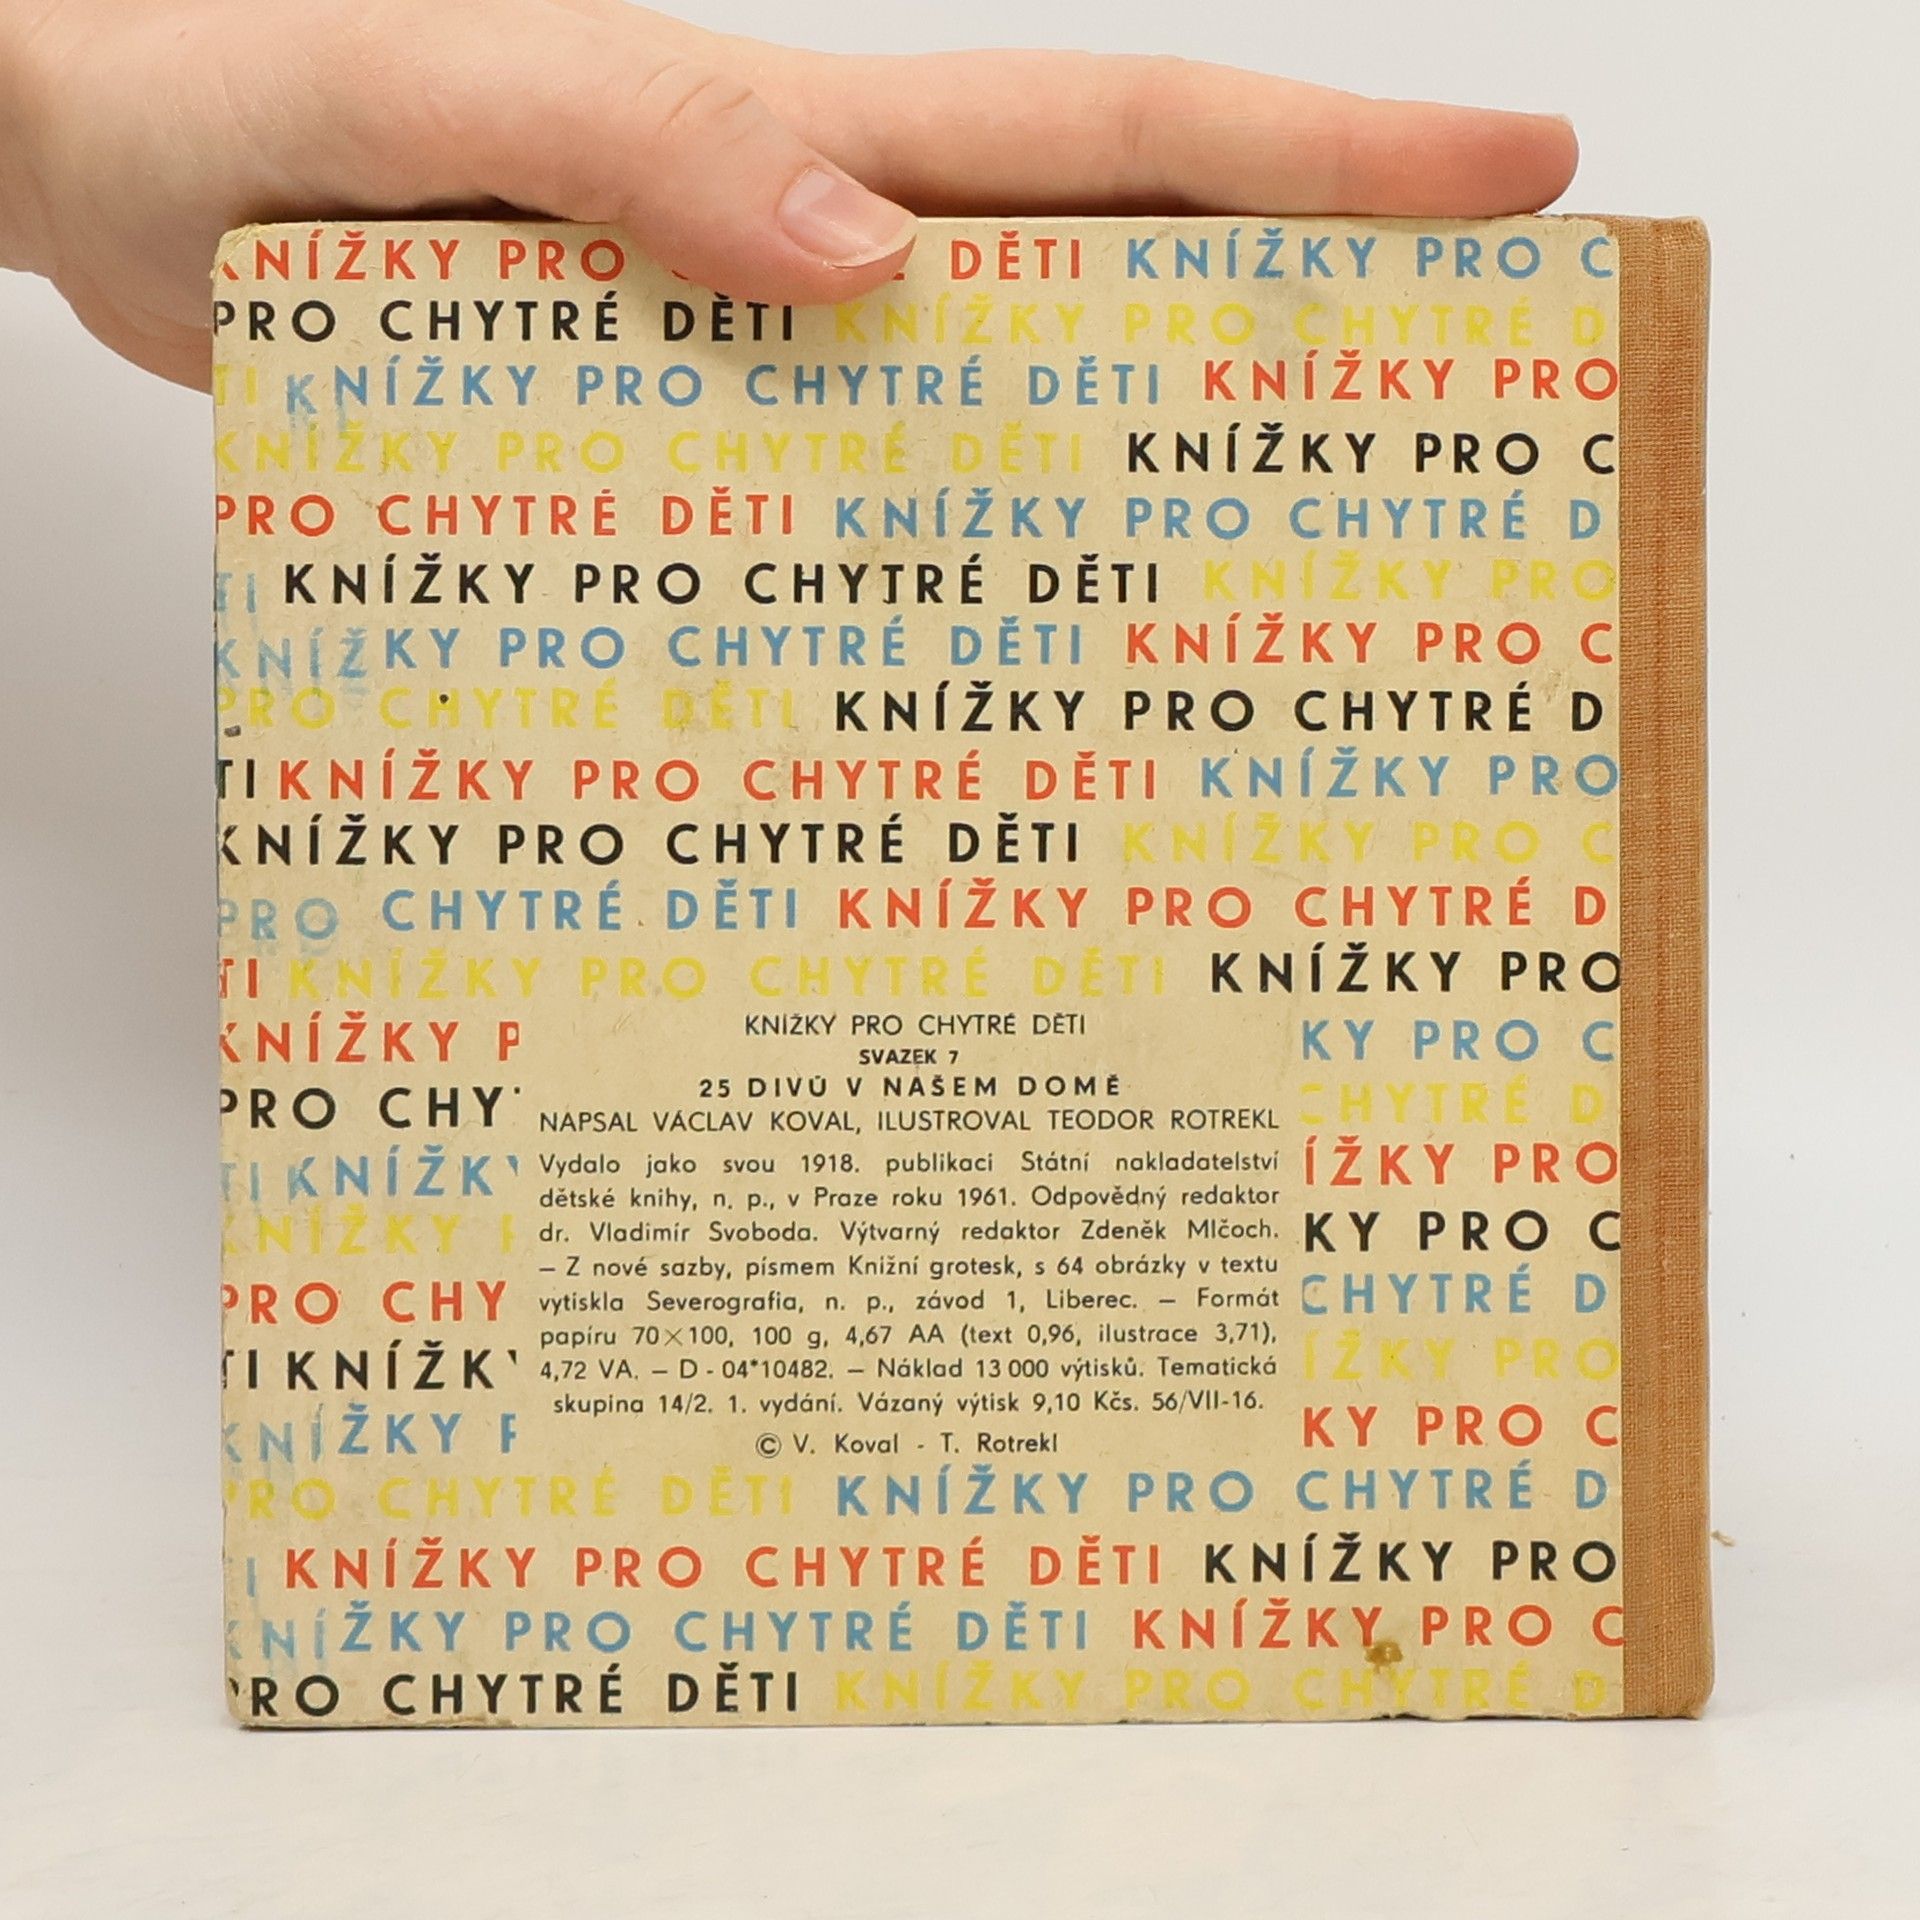 KNÍŽKY PRO DĚTI KNÍŽKY PRO C
PRO CHYTRÉ DĚTI KNÍŽKY PRO CHYTRÉ D
TI KNÍŽKY PRO CHYTRÉ DĚTI KNÍŽKY PRO
KNÍŽKY PRO CHYTRÉ DĚTI KNÍŽKY PRO C
PRO CHYTRÉ DĚTI KNÍŽKY PRO CHYTRÉ D
TI KNÍŽKY PRO CHYTRÉ DĚTI KNÍŽKY PRO
KNÍŽKY PRO CHYTRÉ DĚTI KNÍŽKY PRO C
PRO CHYTRÉ DĚTI KNÍŽKY PRO CHYTRÉ D
TI KNÍŽKY PRO CHYTRÉ DĚTI KNÍŽKY PRO
KNÍŽKY PRO CHYTRÉ DĚTI KNÍŽKY PRO C
PRO CHYTRÉ DĚTI KNÍŽKY PRO CHYTRÉ D
TI KNÍŽKY PRO CHYTRÉ DĚTI KNÍŽKY PRO
KNÍŽKY P KY PRO C
PRO CHY CHYTRÉ D
TI KNÍŽK ÍŽKY PRO
KNÍŽKY KY PRO C
PRO CHY CHYTRÉ D
TI KNÍŽK ÍŽKY PRO
KNÍŽKY P KY PRO C
KNÍŽKY PRO CHYTRÉ DĚTI
SVAZEK 7
25 DIVŮ V NAŠEM DOMĚ
NAPSAL VÁCLAV KOVAL, ILUSTROVAL TEODOR ROTREKL
Vydalo jako svou 1918. publikaci Státní nakladatelství
dětské knihy, n. p., v Praze roku 1961. Odpovědný redaktor
dr. Vladimír Svoboda. Výtvarný redaktor Zdeněk Mlčoch.
– Z nové sazby, písmem Knižní grotesk, s 64 obrázky v textu
vytiskla Severografia, n. p., závod 1, Liberec. – Formát
papíru 70×100, 100 g, 4,67 AA (text 0,96, ilustrace 3,71),
4,72 VA. – D - 04*10482. – Náklad 13 000 výtisků. Tematická
skupina 14/2. 1. vydání. Vázaný výtisk 9,10 Kčs. 56/VII-16.
© V. Koval - T. Rotrekl
PRO CHYTRÉ DĚTI KNÍŽKY PRO CHYTRÉ D
TI KNÍŽKY PRO CHYTRÉ DĚTI KNÍŽKY PRO
KNÍŽKY PRO CHYTRÉ DĚTI KNÍŽKY PRO C
PRO CHYTRÉ DĚTI KNÍŽKY PRO CHYTRÉ D